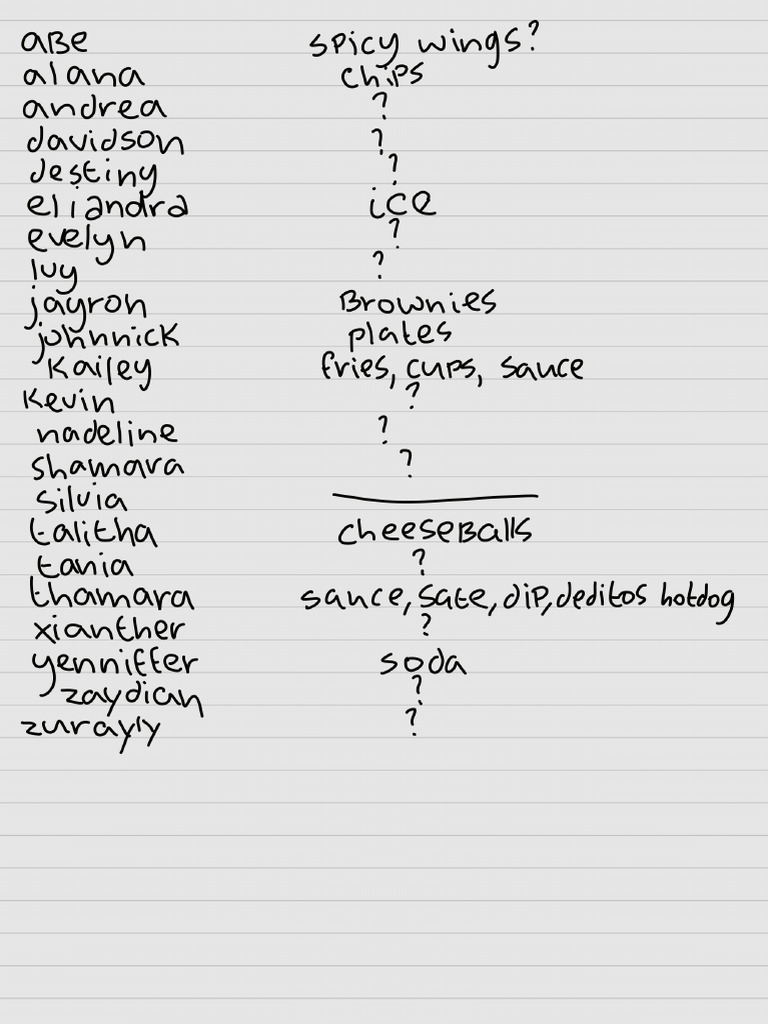 aBe spicy wings?
alana chips
andrea ?
davidson ?
destiny ?
eliandra ice
evelyn ?
Ivy ?
jayron Brownies
johnnick plates
Kailey fries, cups, sauce
Kevin ?
nadeline ?
shamara ?
silvia
talitha cheeseBalls
tania ?
thamara sauce, sate, dip, deditos hotdog
xianther ?
yenniffer soda
zaydian ?
zurayly ?